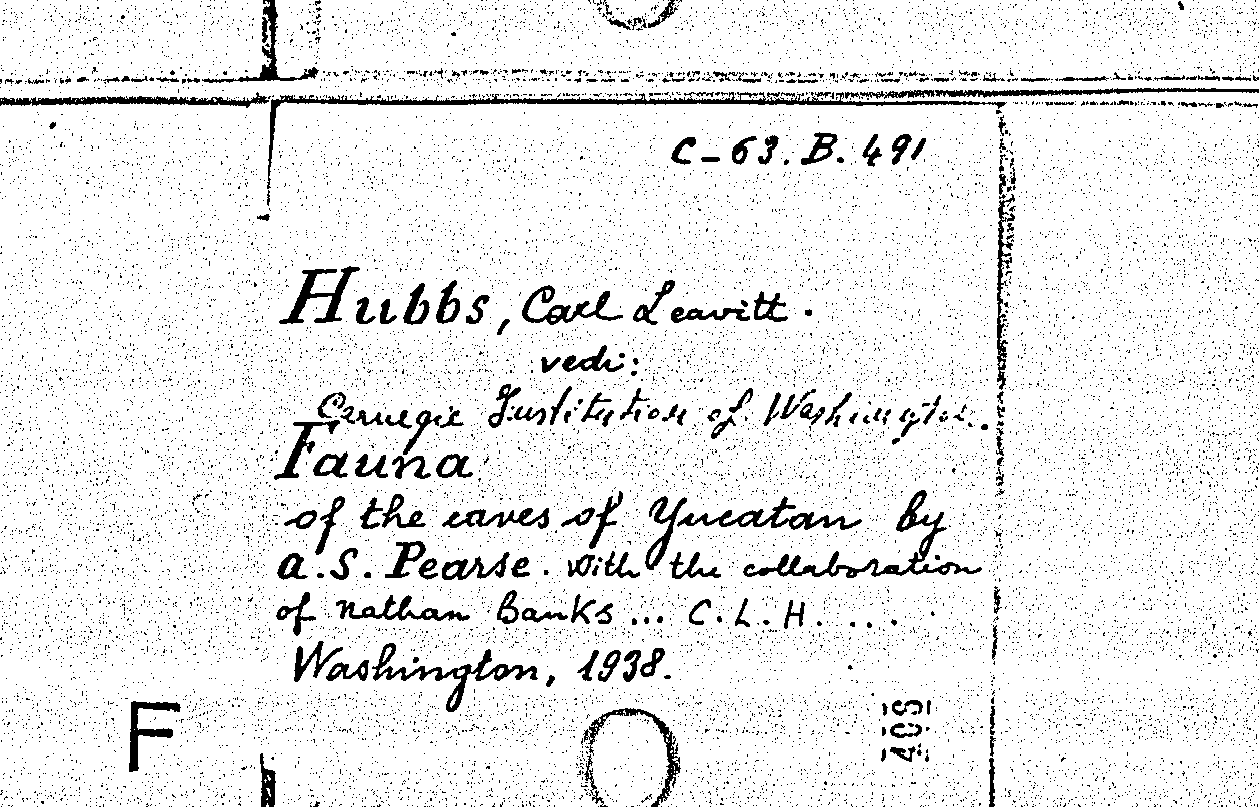 C-63.B.491
Hubbs, Carl Leavitt.
vedi:
Carnegie Institution of Washington.
Fauna
of the caves of Yucatan by
A.S. Pearse. With the collaboration
of Nathan Banks ... C.L.H. ....
Washington, 1938.
F
405